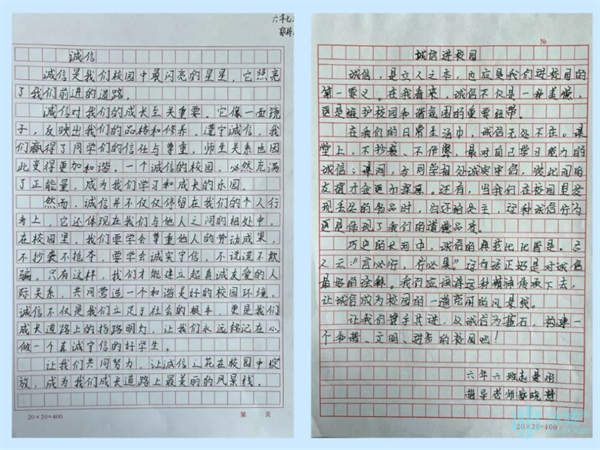 六年七
诚信
诚信是我们校园中最闪亮的星星,它照亮
了我们前进的道路。
诚信对我们的成长至关重要。它像一面镜
子,反映出我们的品格和修养。遵守诚信,我
们赢得了同学们的信任与尊重,师生关系也因
此变得更加和谐。一个诚信的校园,必然充满
了正能量,成为我们学习和成长的乐园。
然而,诚信并不仅仅停留在我们的个人行
为上,它还体现在我们与他人之间的相处中。
在校园里,我们要学会尊重他人的劳动成果,
不抄袭不抢夺,要学会诚实守信,不说谎不欺
骗,只有这样,我们才能建立起真诚友爱的人
际关系,共同营造一个和谐美好的校园环境。
诚信不仅是我们立足于社会的根本,更是我们
成长道路上的指路明灯,让我们永远铭记在心
做一个真诚守信的好学生。
让我们共同努力,让诚信之花在校园中绽
放,成为我们成长道路上最美丽的风景线。
20×20=400
第 页
№
诚信进校园
诚信,是立人之本,也应是我们进校园的
第一要义。在我看来,诚信不仅是一种美德,
更是维护校园和谐氛围的重要纽带。
在我们的日常生活中,诚信无处不在。课
堂上,不抄袭、不作弊,是对自己学习能力的
诚信;课间,与同学相处诚实守信,彼此间的
友谊才会更加深厚。还有,当我们在校园里发
现丢失的物品时,归还给失主,这种诚信行为
更是体现了我们的道德品质。
历史的长河中,诚信的典范比比皆是。
人云“言必行,行必果”这句话正好是对诚信
最好的诠释。我们应该将这种精神传承下去,
让诚信成为校园的一道亮丽的风景线。
让我们携手共进,以诚信为基石,构建一
个和谐、文明、进步的校园吧!
六年六班
指导老师
20×20=400